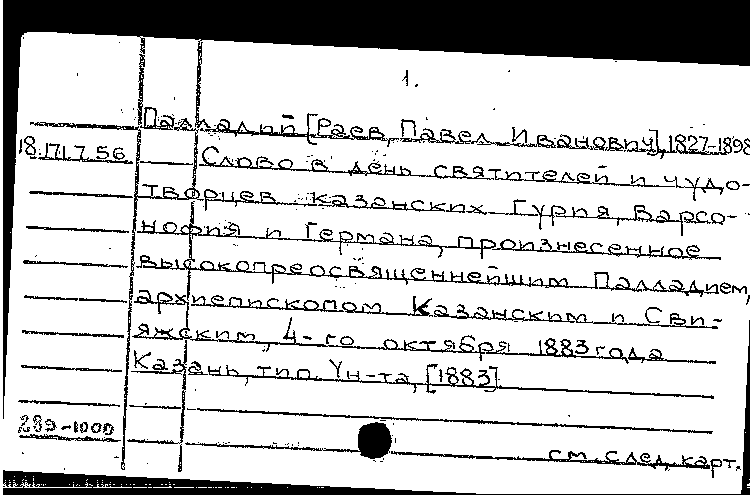 1.
Палладий [Раев, Павел Иванович], 1827-1898
18.171.7.56 Слово в день святителей и чудо-
творцев казанских Гурия, Варсо-
нофия и Германа, произнесенное
высокопреосвященнейшим Палладием,
архиепископом Казанским и Сви-
яжским, 4-го октября 1883 года
Казань, тип. Ун-та, [1883]
289-1000
см. след. карт.